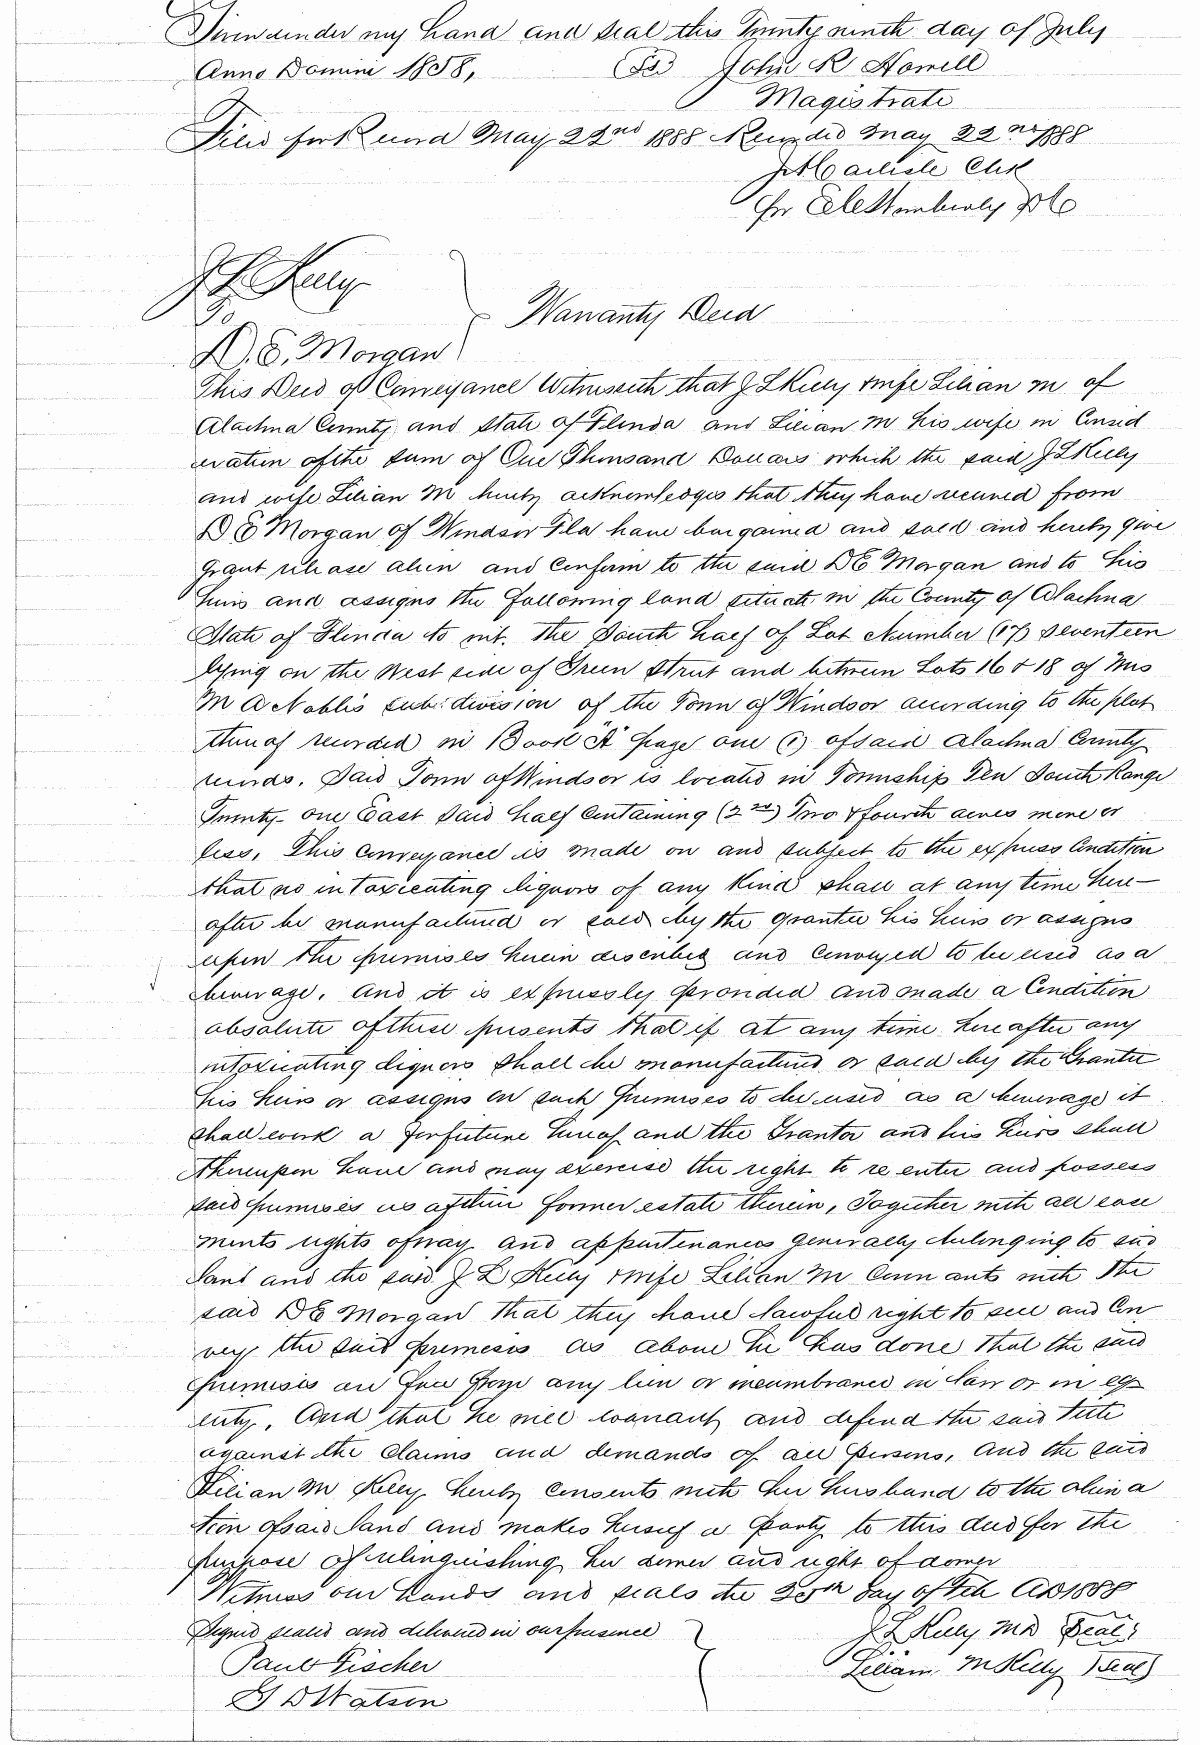 Given under my hand and seal this Twenty ninth day of July
Anno Domini 1858, (LS) John R Howell
Magistrate
Filed for Record May 22nd 1888 Recorded May 22nd 1888
Carlisle Clk
for Wimberly DC
J L Kelly
To
Warranty Deed
D. E. Morgan
This Deed of Conveyance Witnesseth that J L Kelly & wife Lilian M of
Alachua County and State of Florida and Lilian M his wife in Consid
eration of the sum of One Thousand Dollars which the said J L Kelly
and wife Lilian M hereby acknowledges that they have received from
D E Morgan of Windsor Fla have bargained and sold and hereby give
grant release alien and confirm to the said D E Morgan and to his
heirs and assigns the following land situate in the County of Alachua
State of Florida to wit. The South half of Lot Number (17) seventeen
lying on the West side of Green Street and between Lots 16 & 18 of Mrs
M A Nobles sub:division of the Town of Windsor according to the plat
thereof recorded in Book "A" page one (1) of said Alachua County
records. Said Town of Windsor is located in Township Ten South Range
Twenty-one East said half containing Two & fourth acres more or
less, This conveyance is made on and subject to the express Condition
that no intoxicating liquors of any Kind shall at any time here-
after be manufactured or sold by the grantee his heirs or assigns
upon the premises herein described and conveyed to be used as a
beverage. And it is expressly provided and made a Condition
absolute of these presents that if at any time hereafter any
intoxicating liquors shall be manufactured or sold by the Grantee
his heirs or assigns on such premises to be used as a beverage it
shall work a forfeiture hereof and the Grantor and his heirs shall
thereupon have and may exercise the right to re enter and possess
said premises as of their former estate therein, Together with all ease
ments rights of way and appurtenances generally belonging to said
land and the said J L Kelly & wife Lilian M Covenants with the
said D E Morgan that they have lawful right to sell and Con
vey the said premises as above he has done that the said
premises are free from any lien or incumbrance in law or in eq
uity, And that he will warrant and defend the said title
against the claims and demands of all persons, And the said
Lilian M Kelly hereby consents with her husband to the aliena
tion of said land and makes herself a party to this deed for the
purpose of relinquishing her dower and right of dower
Witness our hands and seals the 25th day of Feb AD 1888
Signed sealed and delivered in our presence
J L Kelly MD (Seal)
Paul Fischer
Lilian M Kelly (Seal)
G D Watson